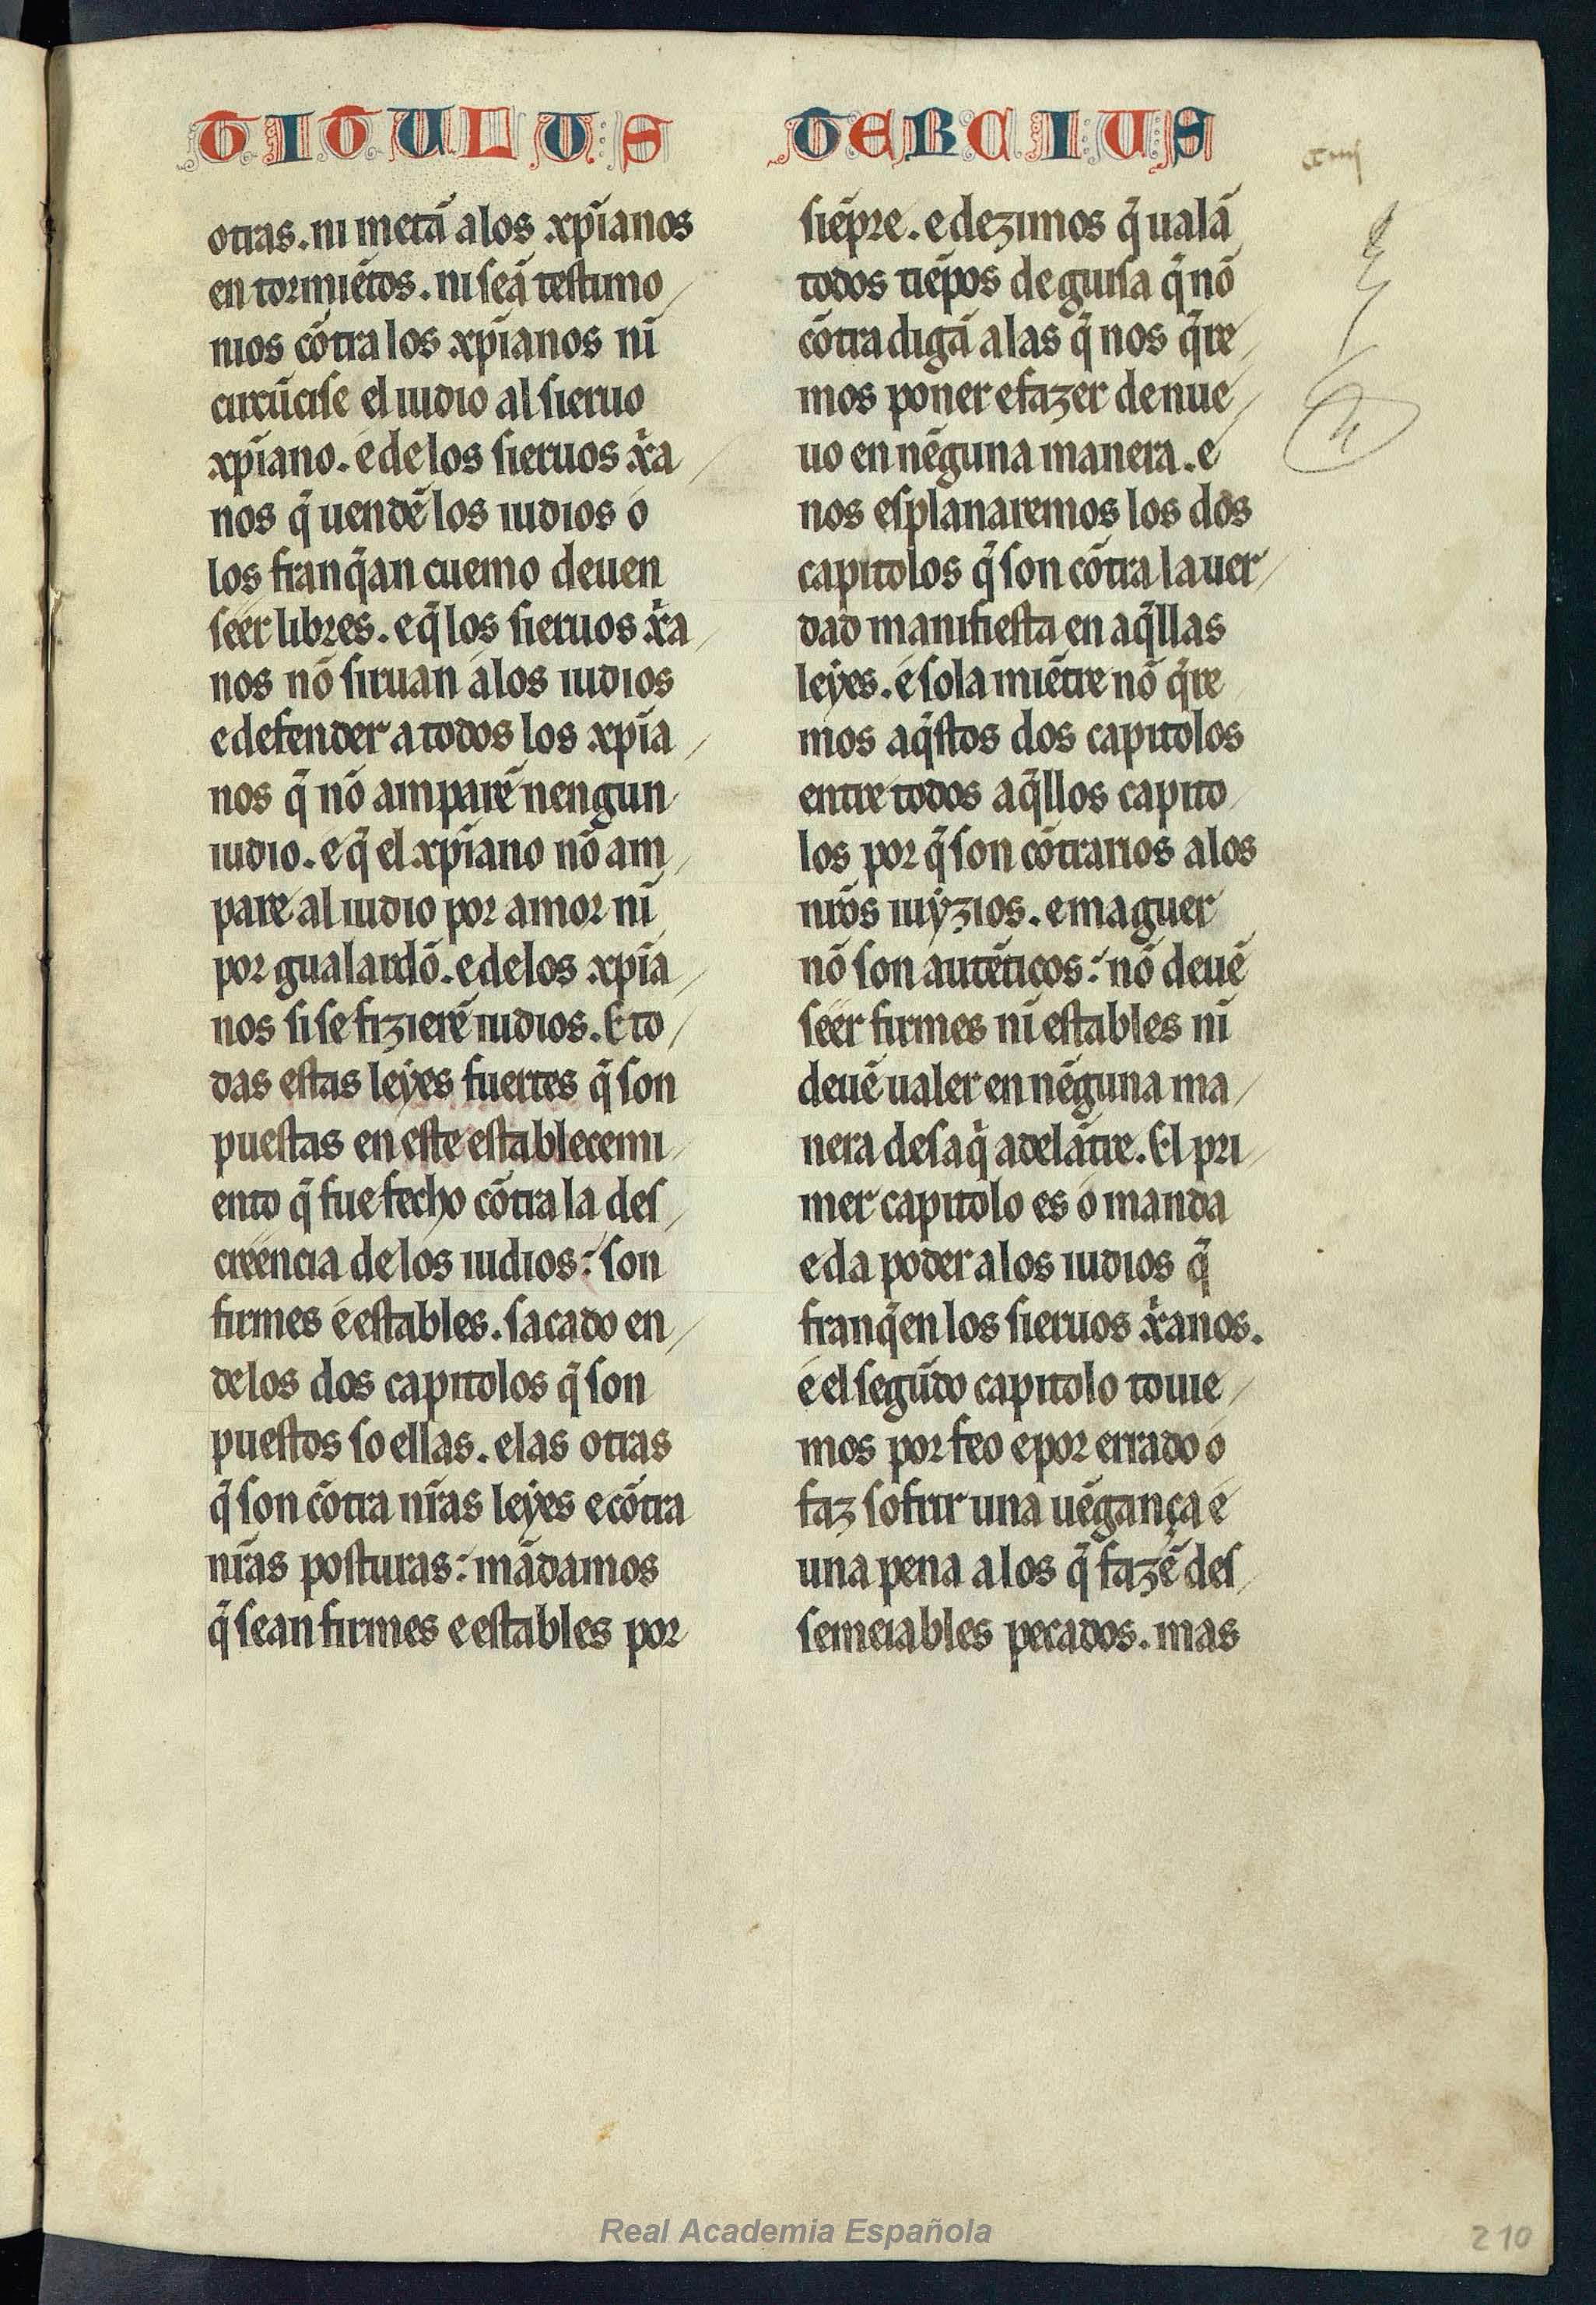 TITULUS TERCIUS
otras. ni metã a los xp̃ianos
en tormiẽtos. ni seã testimo/
nios cõtra los xp̃ianos ni
circũcise el iudio al sieruo
xp̃iano. e de los sieruos xr̃a/
nos q̃ uendẽ los iudios o
los franq̃an cuemo deuen
seer libres. e q̃ los sieruos xr̃a/
nos nõ siruan a los iudios
e defender a todos los xp̃ia/
nos q̃ nõ amparẽ nengun
iudio. e q̃ el xp̃iano nõ am/
pare al iudio por amor ni
por gualardõ. e de los xp̃ia/
nos si se fizierẽ iudios. E to/
das estas leyes fuertes q̃ son
puestas en este establecemi/
ento q̃ fue fecho cõtra la des/
creencia de los iudios: son
firmes e estables. sacado en/
de los dos capitolos q̃ son
puestos so ellas. e las otras
q̃ son cõtra nr̃as leyes e cõtra
nr̃as posturas: mãdamos
q̃ sean firmes e estables por
siẽpre. e dezimos q̃ ualã
todos tiẽpos de guisa q̃ nõ
cõtradigã a las q̃ nos q̃re/
mos poner e fazer de nue/
uo en nẽguna manera. e
nos esplanaremos los dos
capitolos q̃ son cõtra la uer/
dad manifiesta en aq̃llas
leyes. e sola miẽtre nõ q̃re
mos aq̃stos dos capitolos
entre todos aq̃llos capito/
los por q̃ son cõtrarios a los
nr̃os iuyzios. e maguer
nõ son autẽticos: nõ deuẽ
seer firmes ni estables ni
deuẽ ualer en nẽguna ma/
nera desaq̃ adelãtre. El pri/
mer capitolo es o manda
e da poder a los iudios q̃
franq̃en los sieruos xr̃anos.
e el segũdo capitolo touie/
mos por feo e por errado o
faz sofrir una uẽgança e
una pena a los q̃ fazẽ des/
semeiables pecados. mas
Real Academia Española
210